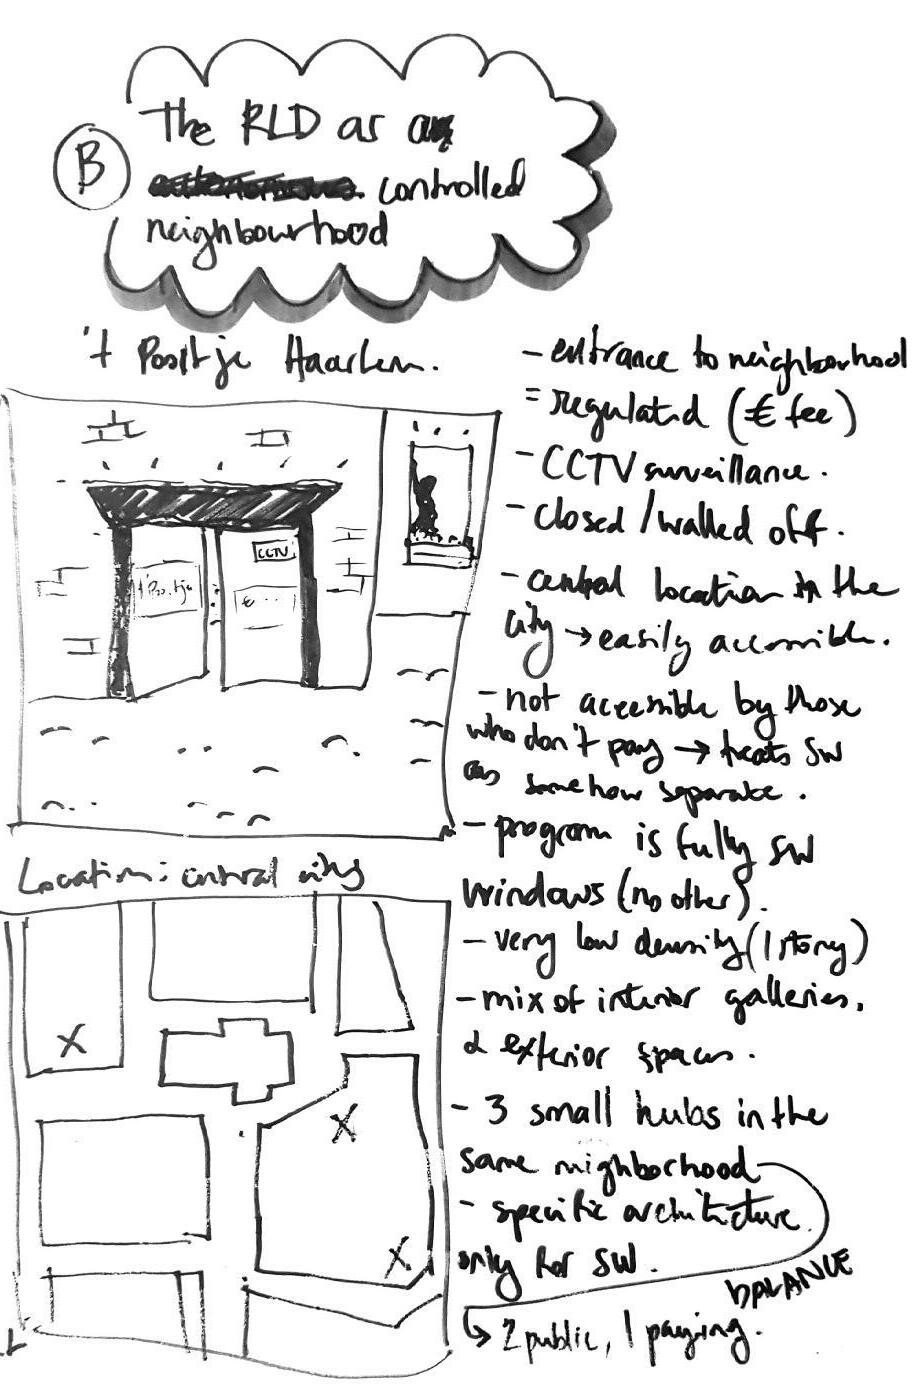 B
The RLD as a
controlled
neighbourhood
't Poortje Haarlem.
CCTV
't Poortje
€ ...
- entrance to neighbourhood
= regulated (€ fee)
- CCTV surveillance.
- closed / walled off.
- central location in the
city → easily accessible.
- not accessible by those
who don't pay → treats SW
as somehow separate.
- program is fully SW
windows (no other).
- very low density (1 story)
- mix of interior galleries.
& exterior spaces.
- 3 small hubs in the
same neighborhood
- specific architecture
only for SW.
BALANCE
↳ 2 public, 1 paying.
Location: central city
X
X
X